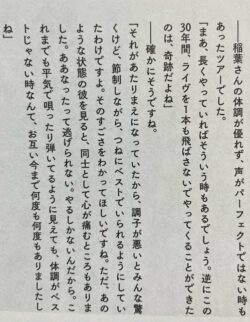 ──稲葉さんの体調が優れず、声がパーフェクトではない時も
あったツアーでした。
「まあ、長くやっていればそういう時もあるでしょう。逆にこの
30年間、ライヴを1本も飛ばさないでやってくることができた
のは、奇跡だよね」
──確かにそうですね。
「それがあたりまえになっていたから、調子が悪いとみんな驚
くけど、節制しながら、つねにベストでいられるようにしてい
たわけですよ。そのすごさをわかってほしいですね。ただ、あの
ような状態の彼を見ると、同士として心が痛むところもありま
した。ああなったって逃げられない。やるしかないんだから。こ
れまでも平気で唄ったり弾いてるように見えても、体調がベス
トじゃない時なんて、お互い今まで何度も何度もありましたし
ね」